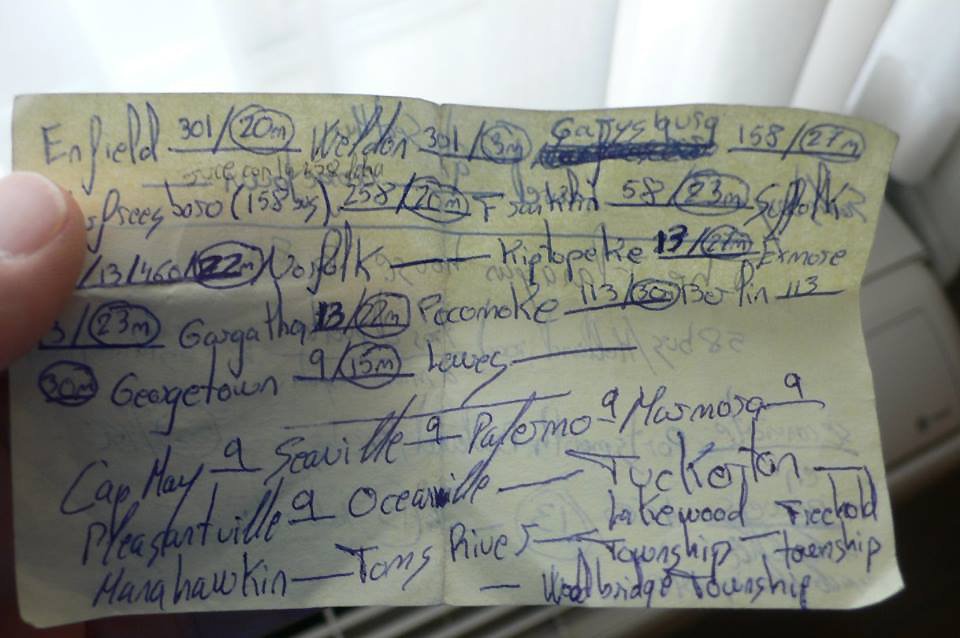 Enfield 301/20m Weldon 301/3m Garysburg 158/27m
boro (158bus) 258/20m Franklin 58/23m Suffolk
/13/460/22m Norfolk — Kiptopeke 13/27m Exmore
3/23m Gargatha 13/22m Pocomoke 113/30 Berlin 113
30m Georgetown 9/15m Lewes —
Cap May 9 Seaville 9 Palermo 9 Marmora 9
Pleasantville 9 Oceanville — Tuckerton —
Manahawkin — Toms River — Lakewood Township — Freehold township
— Woodbridge Township